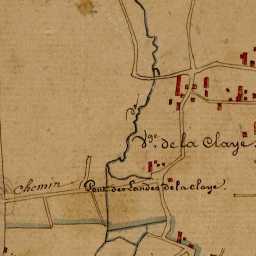 Vge. de la Claye.
Chemin
Pont des Landes de la Claye.